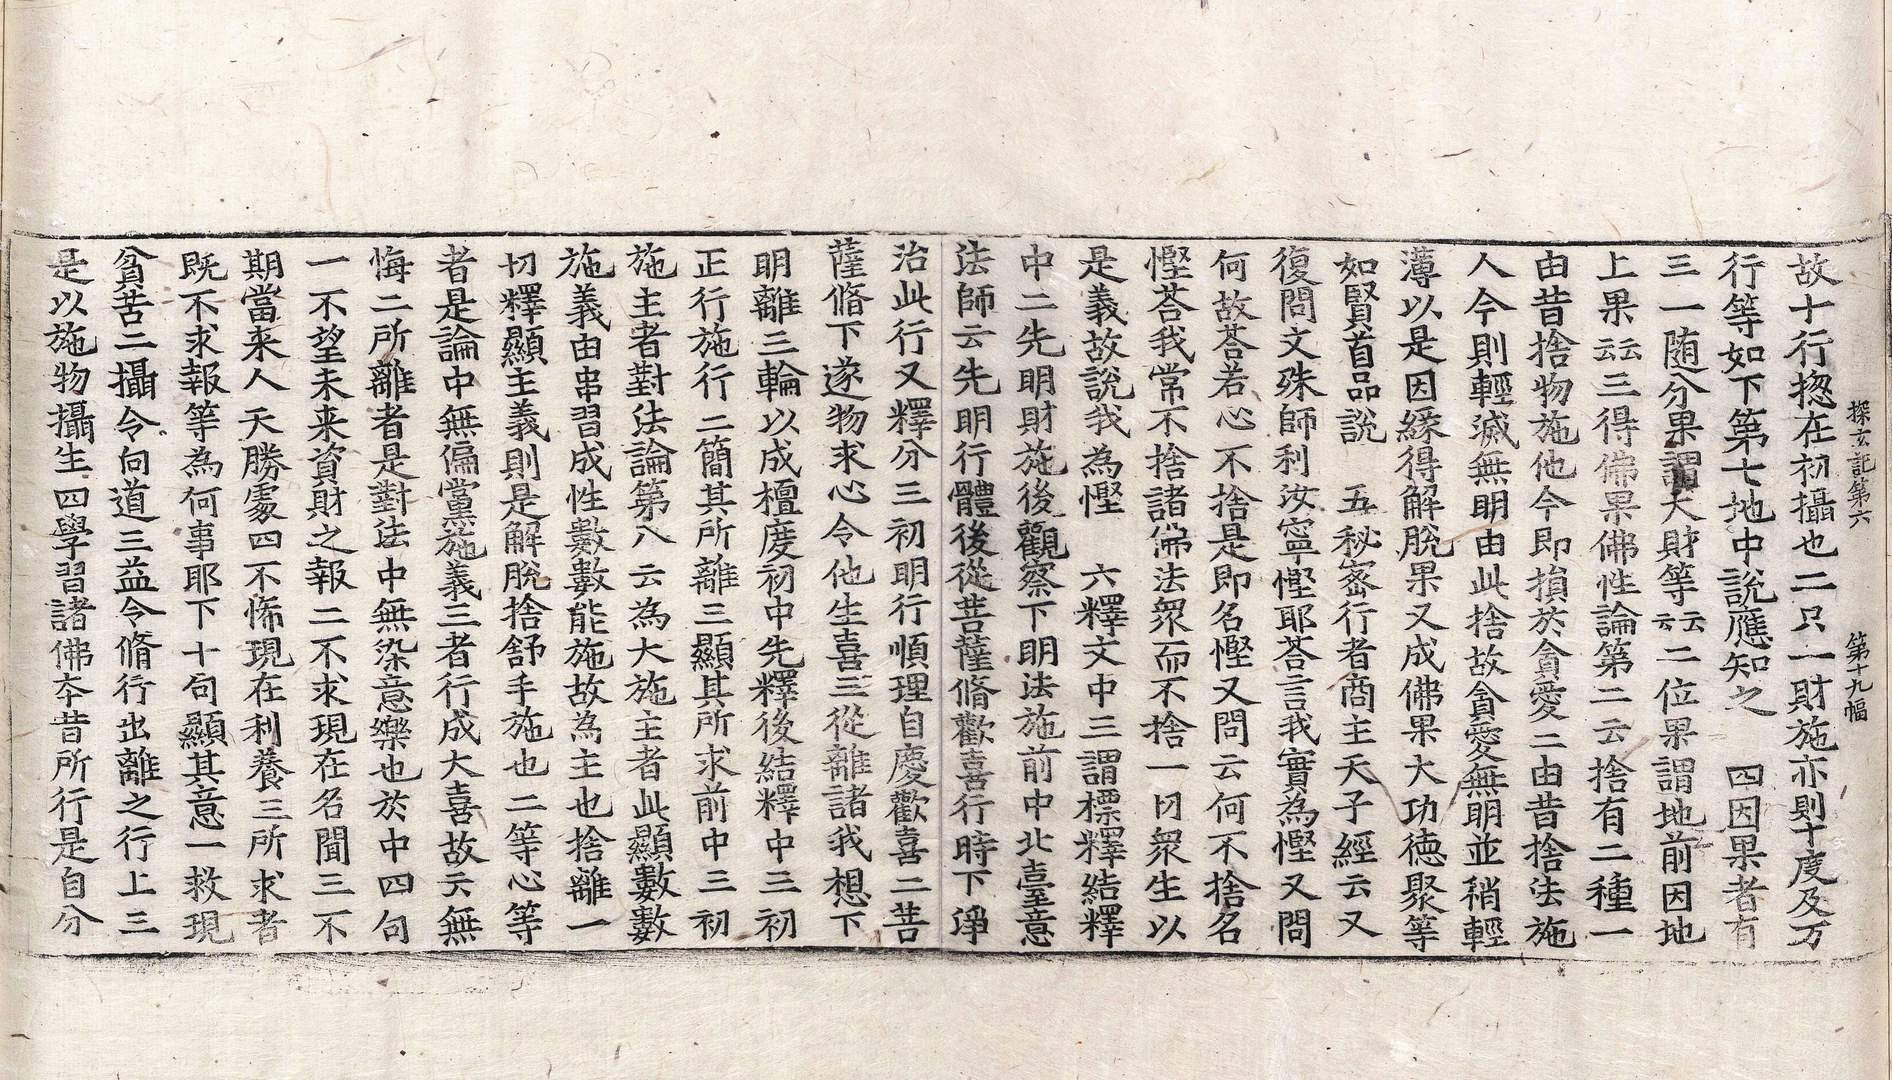 探玄記第六 第十九幅
故十行揔在初攝也二只一財施亦則十度及万
行等如下第七地中說應知之 四因果者有
三一随分果謂大財等云云二位果謂地前因地
上果云云三得佛果佛性論第二云捨有二種一
由昔捨物施他今即損於貪愛二由昔捨法施
人今則輕滅無明由此捨故貪愛無明並稍輕
薄以是因緣得解脫果又成佛果大功德聚等
如賢首品說 五秘密行者商主天子經云又
復問文殊師利汝寧慳耶荅言我實為慳又問
何故荅若心不捨是即名慳又問云何不捨名
慳荅我常不捨諸佛法眾而不捨一切眾生以
是義故說我為慳 六釋文中三謂標釋結釋
中二先明財施後觀察下明法施前中北臺意
法師云先明行體後從菩薩脩歡喜行時下淨
治此行又釋分三初明行順理自慶歡喜二菩
薩脩下遂物求心令他生喜三從離諸我想下
明離三輪以成檀度初中先釋後結釋中三初
正行施行二簡其所離三顯其所求前中三初
施主者對法論第八云為大施主者此顯數數
施義由串習成性數數能施故為主也捨離一
切釋顯主義則是解脫捨舒手施也二等心等
者是論中無偏黨施義三者行成大喜故云無
悔二所離者是對法中無染意樂也於中四句
一不望未来資財之報二不求現在名聞三不
期當来人天勝處四不悕現在利養三所求者
既不求報等為何事耶下十句顯其意一救現
貧苦二攝令向道三益令脩行出離之行上三
是以施物攝生四學習諸佛夲昔所行是自分